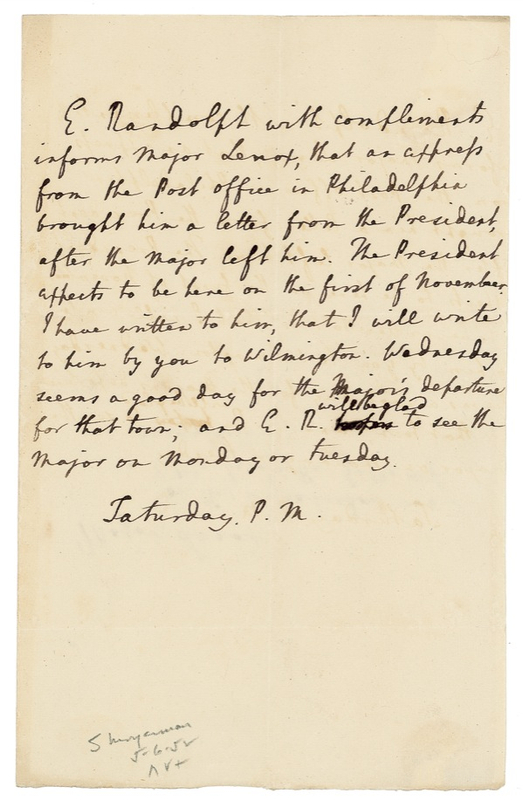 E. Randolph with compliments
informs Major Lenox, that an express
from the Post office in Philadelphia
brought him a letter from the President,
after the Major left him. The President
expects to be here on the first of November.
I have written to him, that I will write
to him by you to Wilmington. Wednesday
seems a good day for the Major's departure
will be glad
for that town; and E. R. to see the
Major on Monday or Tuesday.
Saturday. P. M.
5-6-52